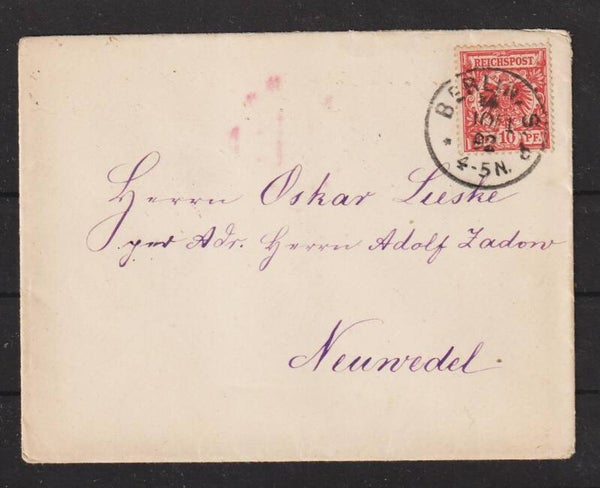 REICHSPOST
10 PF.
BERLIN S
10 1
92
4-5N.
Herrn Oskar Lieske
per Adr. Herrn Adolf Zadow
Neuwedel